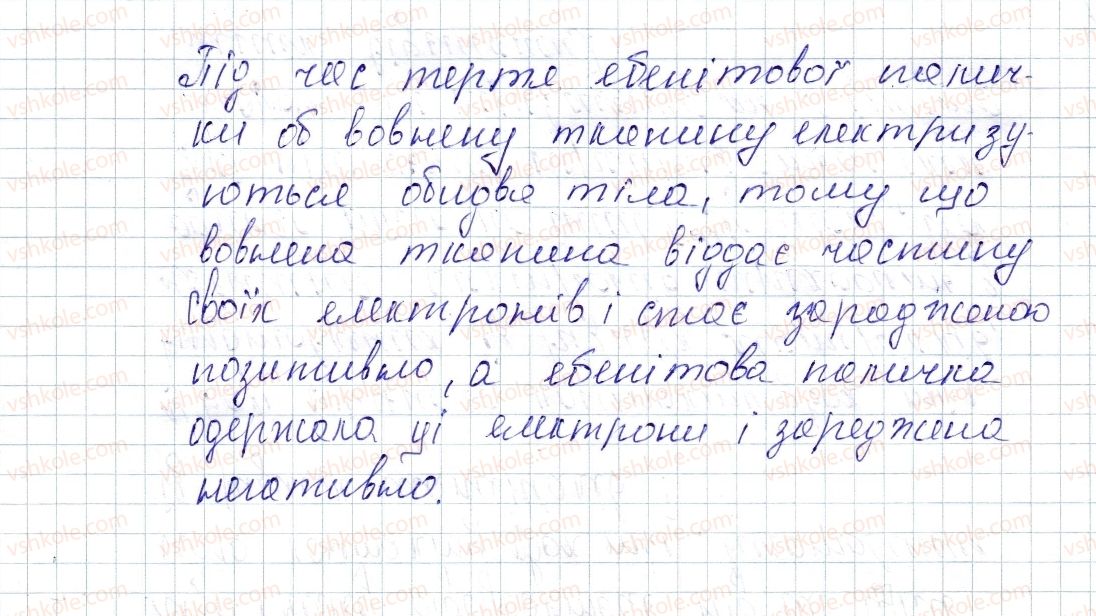 Під час тертя ебенітової палич-
ки об вовняну тканину електризу-
ються обидва тіла, тому що
вовняна тканина віддає частину
своїх електронів і стає зарядженою
позитивно, а ебенітова паличка
одержала ці електрони і заряджена
негативно.